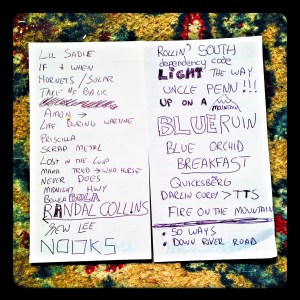 LIL SADIE
IF + WHEN
HORNETS / SUGAR
TAKE ME BACK
AMON →
LIFE DURING WARTIME
PRISCILLA
SCRAP METAL
LOST IN THE LOOP
MAMA TRIED → WILD HORSE
NEVER DOES
MIDNIGHT HWY
BOLA
RANDAL COLLINS
SEW LEE
NOOKS
ROLLIN' SOUTH
dependency code
LIGHT THE WAY
UNCLE PENN!!!
UP ON A MOUNTAIN
BLUE RUIN
BLUE ORCHID
BREAKFAST
QUICKSBERG
DARLIN COREY > TTS
FIRE ON THE MOUNTAIN
• 50 WAYS
• DOWN RIVER ROAD